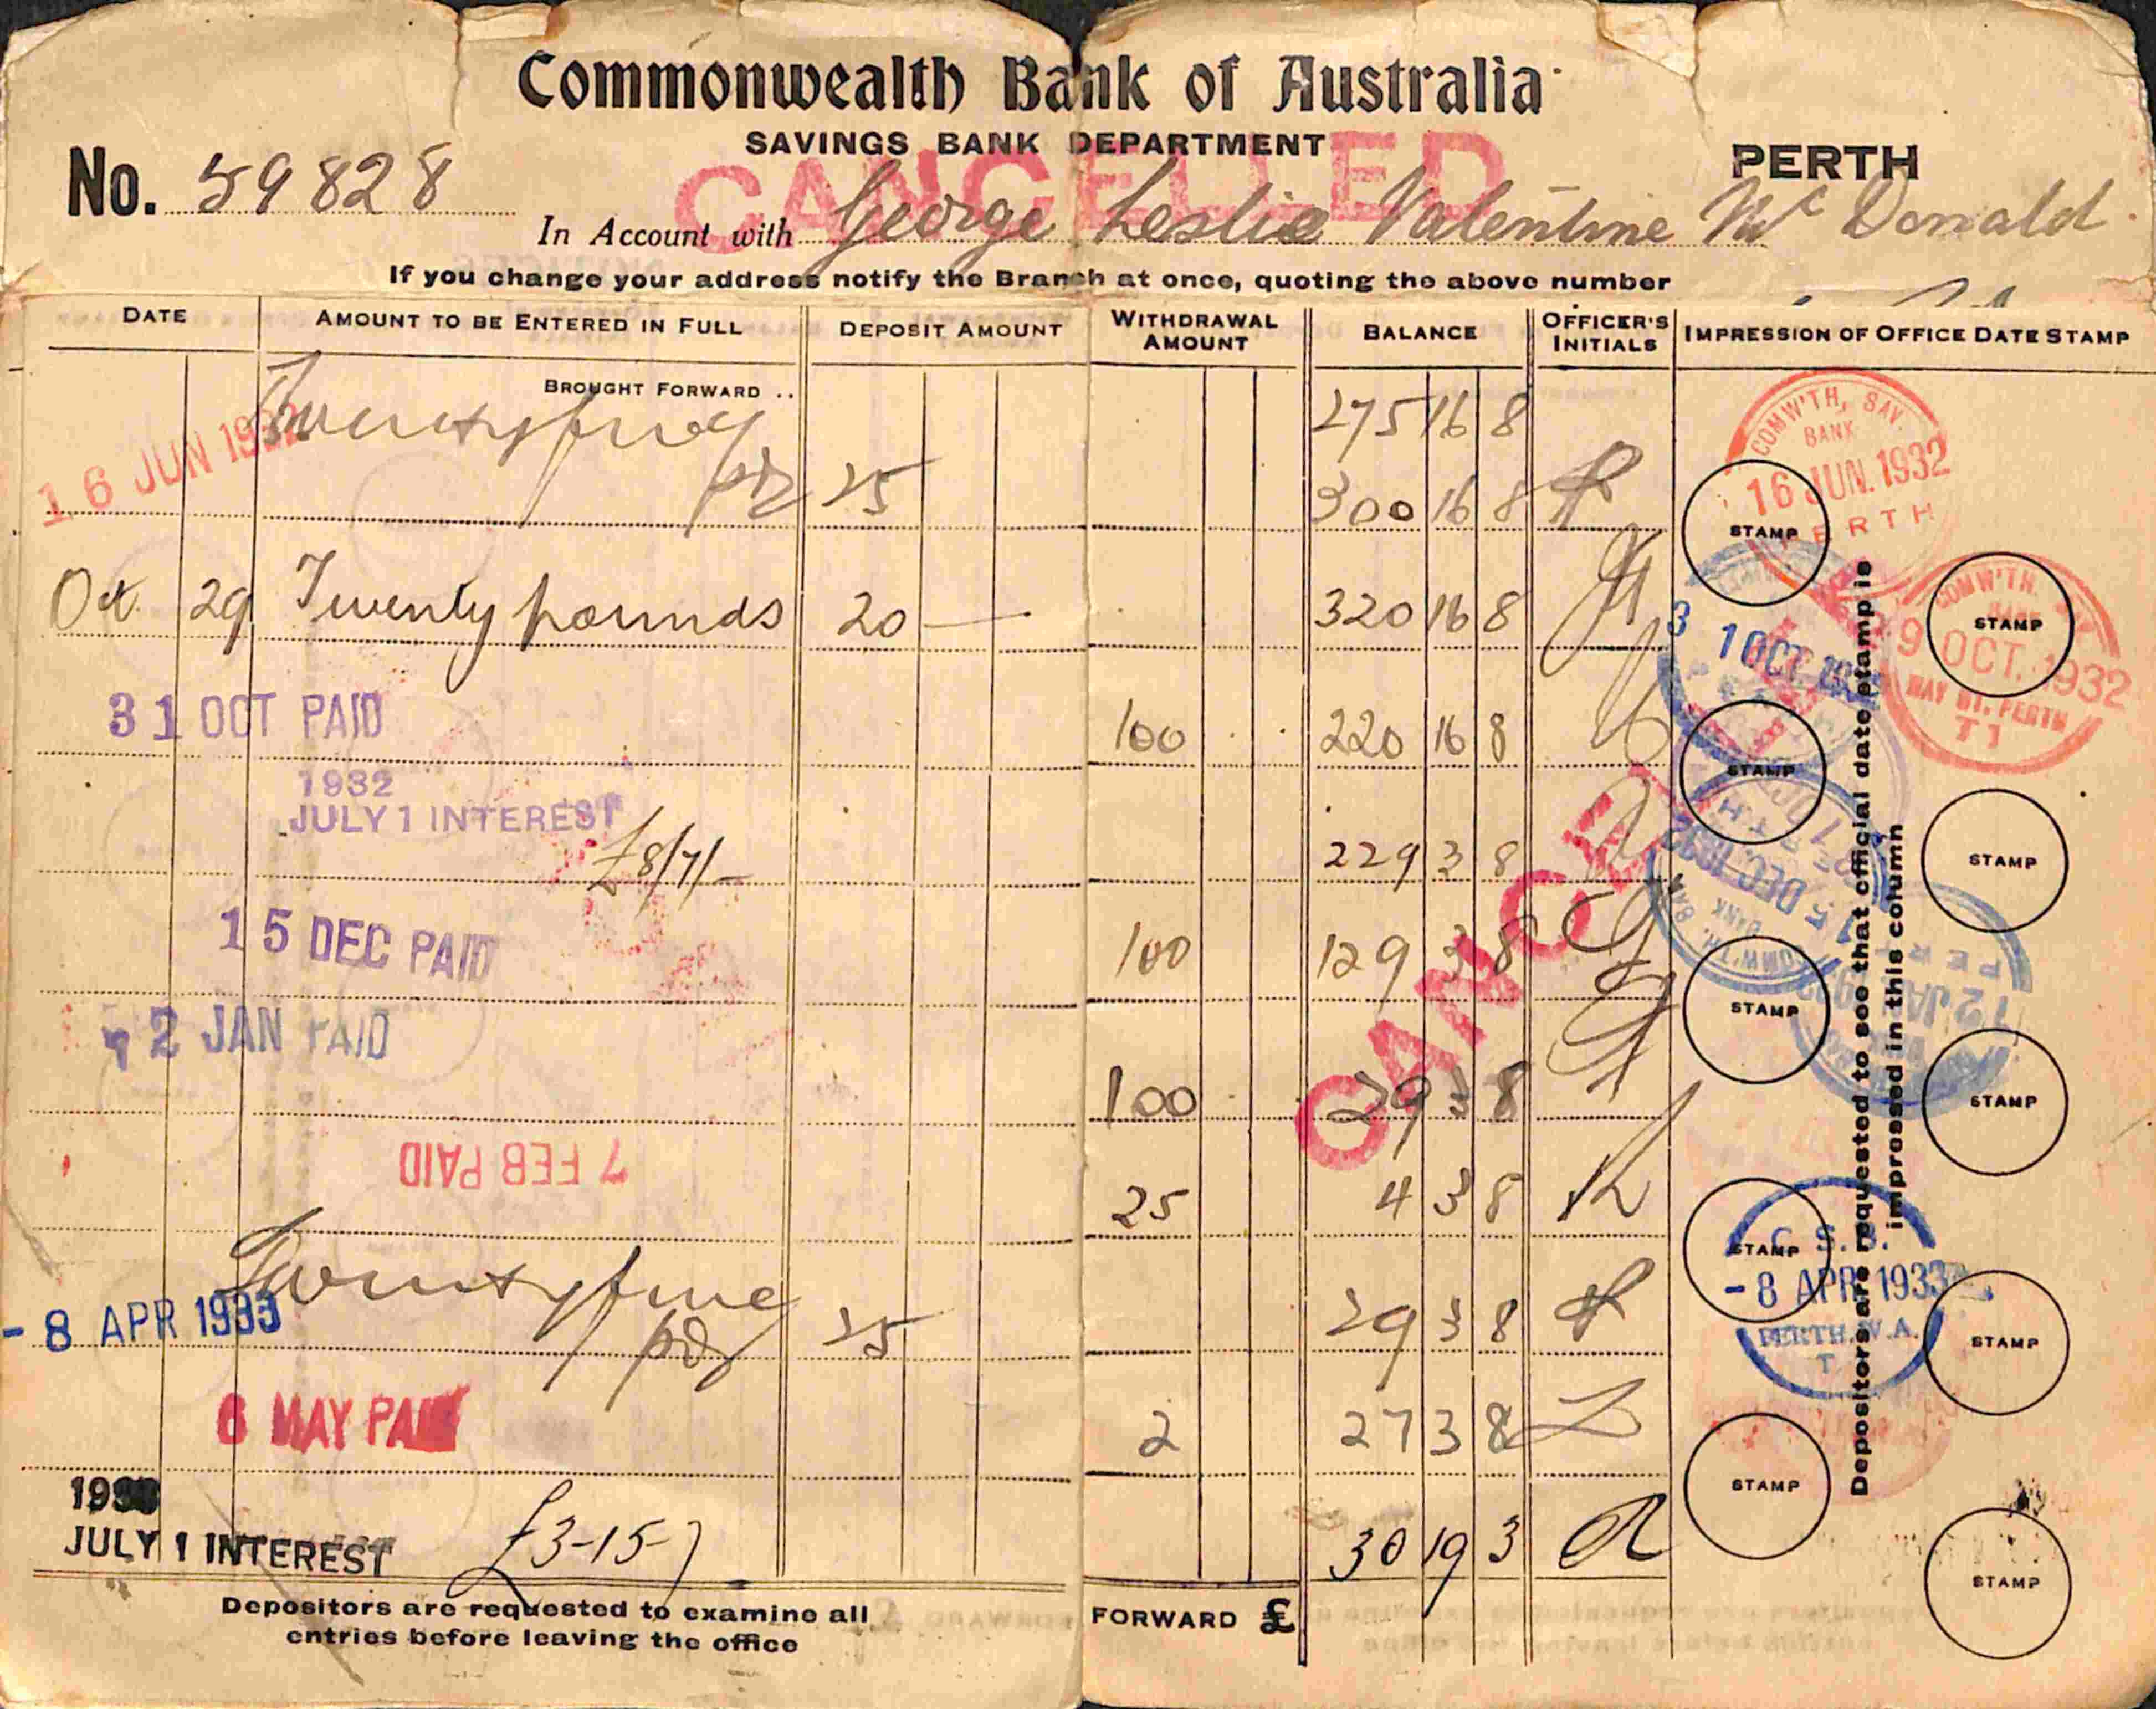 Commonwealth Bank of Australia
SAVINGS BANK DEPARTMENT
CANCELLED
PERTH
No. 59828
In Account with George Leslie Valentine McDonald
If you change your address notify the Branch at once, quoting the above number
DATE AMOUNT TO BE ENTERED IN FULL DEPOSIT AMOUNT WITHDRAWAL AMOUNT BALANCE OFFICER'S INITIALS IMPRESSION OF OFFICE DATE STAMP
BROUGHT FORWARD .. 275 16 8
16 JUN 1932 Twentyfive pds 25 300 16 8
Oct 29 Twenty pounds 20 — 320 16 8
31 OCT PAID 100 220 16 8
1932
JULY 1 INTEREST
£8/7/- 229 3 8
15 DEC PAID 100 129 3 8
12 JAN PAID
100 29 3 8
7 FEB PAID
25 4 3 8
- 8 APR 1933 Twentyfive pds 25 29 3 8
6 MAY PAID 2 27 3 8
1933
JULY 1 INTEREST £3-15-7 30 19 3
Depositors are requested to examine all
entries before leaving the office
FORWARD £
COMW'TH, SAV.
BANK
16 JUN. 1932
PERTH
STAMP
COMW'TH.
29 OCT. 1932
HAY ST. PERTH
T1
STAMP
31 OCT. 1932
STAMP
STAMP
15 DEC. 1932
STAMP
12 JAN
STAMP
STAMP
C. S. B.
- 8 APR 1933
PERTH. W.A.
T
STAMP
STAMP
STAMP
CANCEL
Depositors are requested to see that official date stamp is
impressed in this column